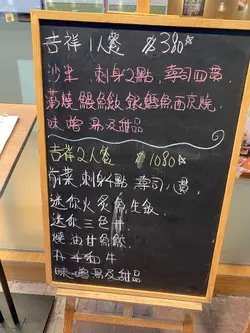 吉祥1人餐 $380
沙律 刺身2點 壽司四貫,
蒲燒鰻魚飯 銀鱈魚西京燒,
味噌湯及甜品
吉祥2人餐 $1080
前菜 刺身4點 壽司八貫,
迷你火炙魚生飯,
迷你三色丼
燒油甘魚鮫
味噌湯及甜品